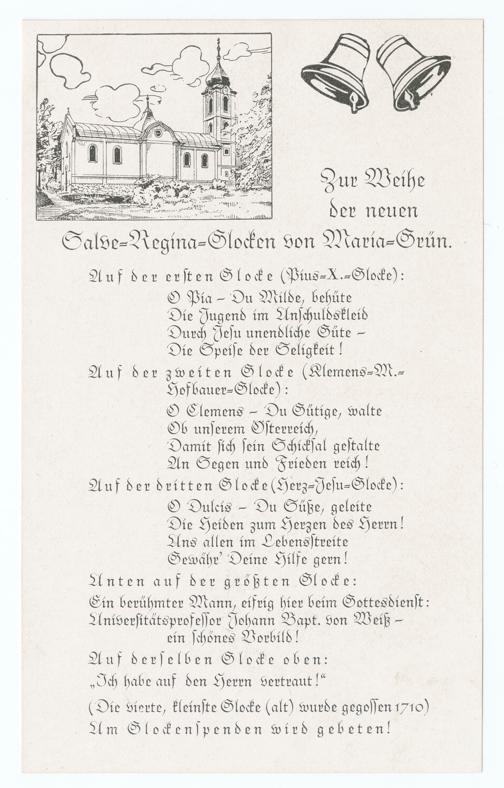 Zur Weihe
der neuen
Salve=Regina=Glocken von Maria=Grün.
Auf der ersten Glocke (Pius=X.=Glocke):
O Pia – Du Milde, behüte
Die Jugend im Unschuldskleid
Durch Jesu unendliche Güte –
Die Speise der Seligkeit!
Auf der zweiten Glocke (Klemens=M.=
Hofbauer=Glocke):
O Clemens – Du Gütige, walte
Ob unserem Österreich,
Damit sich sein Schicksal gestalte
An Segen und Frieden reich!
Auf der dritten Glocke (Herz=Jesu=Glocke):
O Dulcis – Du Süße, geleite
Die Heiden zum Herzen des Herrn!
Uns allen im Lebensstreite
Gewähr' Deine Hilfe gern!
Unten auf der größten Glocke:
Ein berühmter Mann, eifrig hier beim Gottesdienst:
Universitätsprofessor Johann Bapt. von Weiß –
ein schönes Vorbild!
Auf derselben Glocke oben:
„Ich habe auf den Herrn vertraut!“
(Die vierte, kleinste Glocke (alt) wurde gegossen 1710)
Um Glockenspenden wird gebeten!